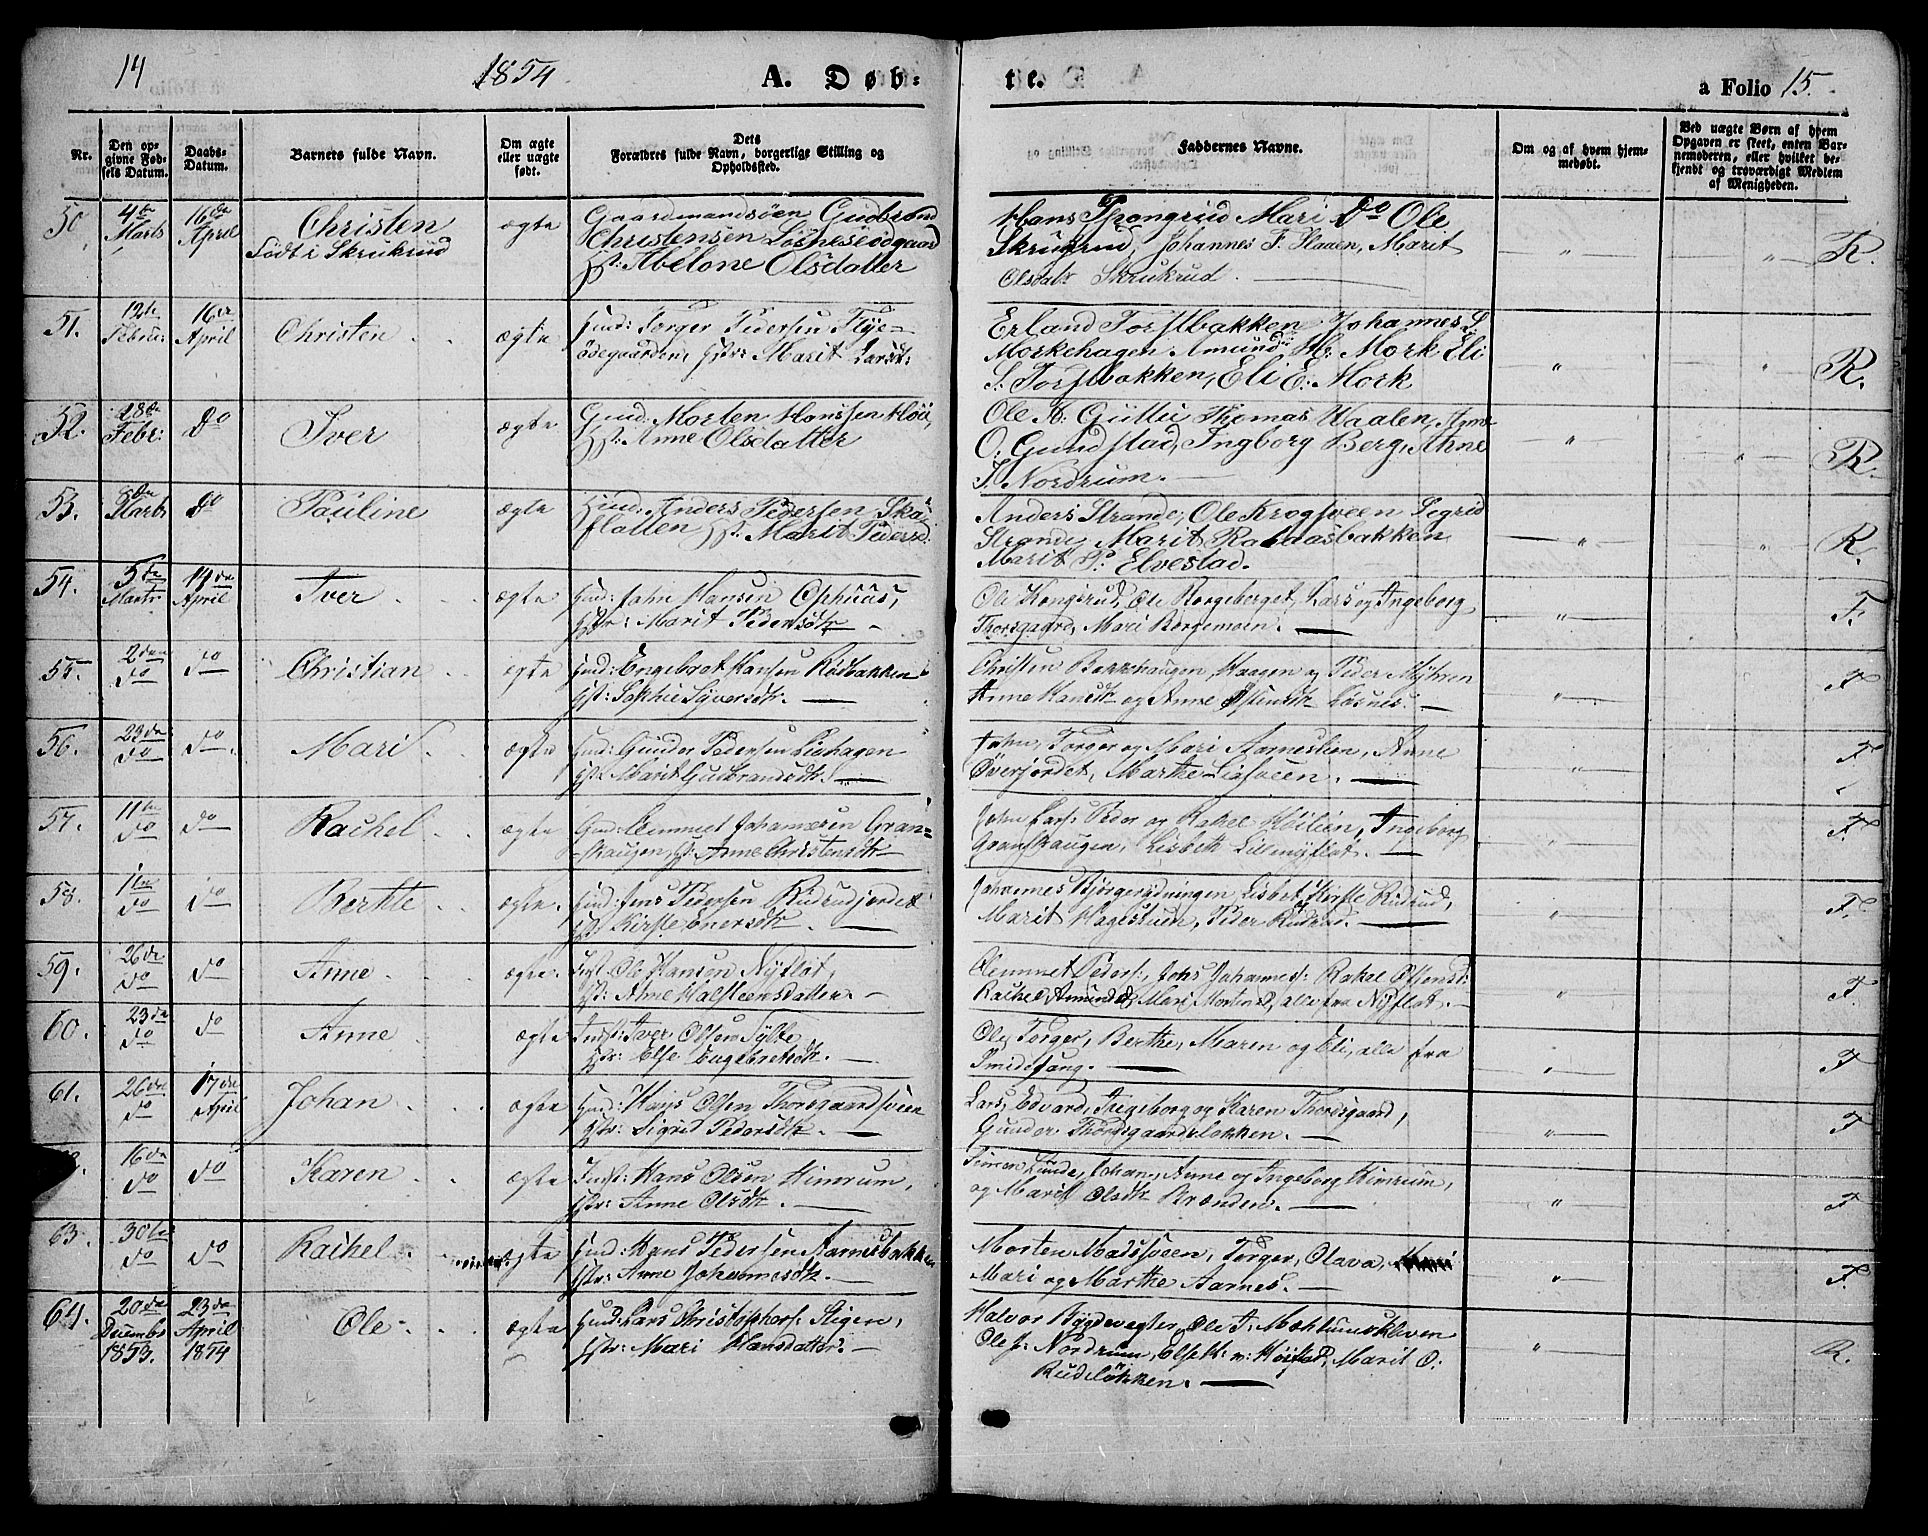 14
1854
A. Døb-
te.
a Folio 15.
Nr.
Den op-
givne Fød-
sels Datum.
Daabs-
Datum.
Barnets fulde Navn.
Om ægte
eller uægte
født.
Dets
Forældres fulde Navn, borgerlige Stilling og
Opholdssted.
Faddernes Navne.
Om og af hvem hjem-
medøbt.
Ved uægte Børn af hvem
Opgaven er skeet, enten Bar-
nemoderen, eller hvilket be-
kjendt og troværdigt Medlem
af Menigheden.
50
4de Marts
16de April
Christen
Født i Skrukrud
ægte
Gaardmandsøen Gudbrand
Christensen Løsnesødegaard
Abelone Olsdatter
Hans Prongrud Mari Do Ole
Skrukrud, Johannes F. Haaen, Marit
Olsdatr Skrukrud
"
"
R.
51.
12te Februar
16de April
Christen
ægte
Huus: Torger Pedersen Flye-
ødegaarden, Hstr: Marit Larsd:
Erland Torstbakken Johannes L
Morkehagen Amund M. Mork Eli
L: Torstbakken, Eli E: Mork
"
"
R.
52.
28de Febr:
Do
Iver
ægte
Morten Hanssen
Hst: Anne Olsdatter
Ole Guttu Thomas Waalen,
O: Gundstad, Ingborg Berg, Ahne
J. Nordrum.
"
"
R.
53.
8de Marts
Do
Pauline
ægte
Huus: Anders Pedersen Ska-
flatten Hst: Marit Pedersd:
Anders Strande, Ole Krogsveen Segrid
Strande Marit Randasbakken
Marit P: Elvestad.
"
"
R.
54.
5de Marts
14de April
Iver
ægte
Huus: John Hansen Ophuus,
Hstr: Marit Pedersdtr
Ole Kongsrud, Ole Borgeberget, Lars og Ingeborg
Thorsgaard, Mari Borgemoen.
"
F.
55.
2den do
do
Christian
ægte
Huus: Engebret Hansen Rødbakken
Hst: Sophie Syversdtr.
Christen Haagen og Peder Myhren
Anne Hansdtr og Anne Østensdtr Løsnes.
"
F
56.
23de do
do
Mari
ægte
Huus: Gunder Pedersen Liehagen
Hst: Marit Gudbrandsdtr.
John, Torger og Mari Aarneslien, Anne
Øverjordet, Marthe Liesveen.
"
F
57.
11te do
do
Rachel
ægte
Huus: Clemmet Johannesen Gran-
-haugen, H: Anne Christensdtr
John Lars: Peder og Rakel Høilien, Ingeborg
Granhaugen, Lisbeth Lillenyflot.
"
F.
58.
11te do
do
Berthe
ægte.
Huus: Jens Pedersen Rudsrudjordet
Hst: Kirste Enersdtr.
Johannes Bjørgerydningen, Lisbet Kirste Rudsrud,
Marit Hagestuen, Peder Rudsrud.
"
F.
59.
26de do
do
Anne
ægte.
Inst: Ole Hansen Nyflot,
Hst: Anne Halsteensdatter.
Clemmet Peders:, Johs Johannes: Rakel Østensd:
Rachel Amundsd, Mari Mortensd, alle fra Nyflot.
"
F.
60.
23de do
do
Anne
ægte
Inst: Iver Olsen Sylte,
Hstr: Else Engebretsdtr.
Ole, Torger, Berthe, Maren og Eli, alle fra
Smidesang.
"
F
61.
26de do
17de April
Johan
ægte
Huus: Hans Olsen Thorsgaardsveen
Hstr: Sigrid Pedersdtr.
Lars, Edvard, Ingeborg og Karen Thorsgaard,
Gunder Thorsgaardsløkken.
"
F
16de do
do
Karen
ægte
Inst: Hans Olsen Himrum,
Hstr: Anne Olsdtr.
Simen Lunde, Johan, Anne og Ingeborg Himrum,
og Marit Olsdtr Brænden.
"
F
63.
30te do
do
Rachel
ægte
Huus: Hans Pedersen Aarnesbakken
Hstr: Anne Johannesdtr.
Morten Madssveen, Torger, Olava,
Mari og Marthe Aarnes.
"
F.
64.
20de Decembr 1853.
23de April 1854
Ole
ægte
Huus: Lars Christophers: Stigen,
Hstr: Mari Hansdatter.
Halvor Bygdevegter, Ole A. Mæhlumskleven
Ole J. Nordrum, Marit O.
Rudsløkken.
"
R.